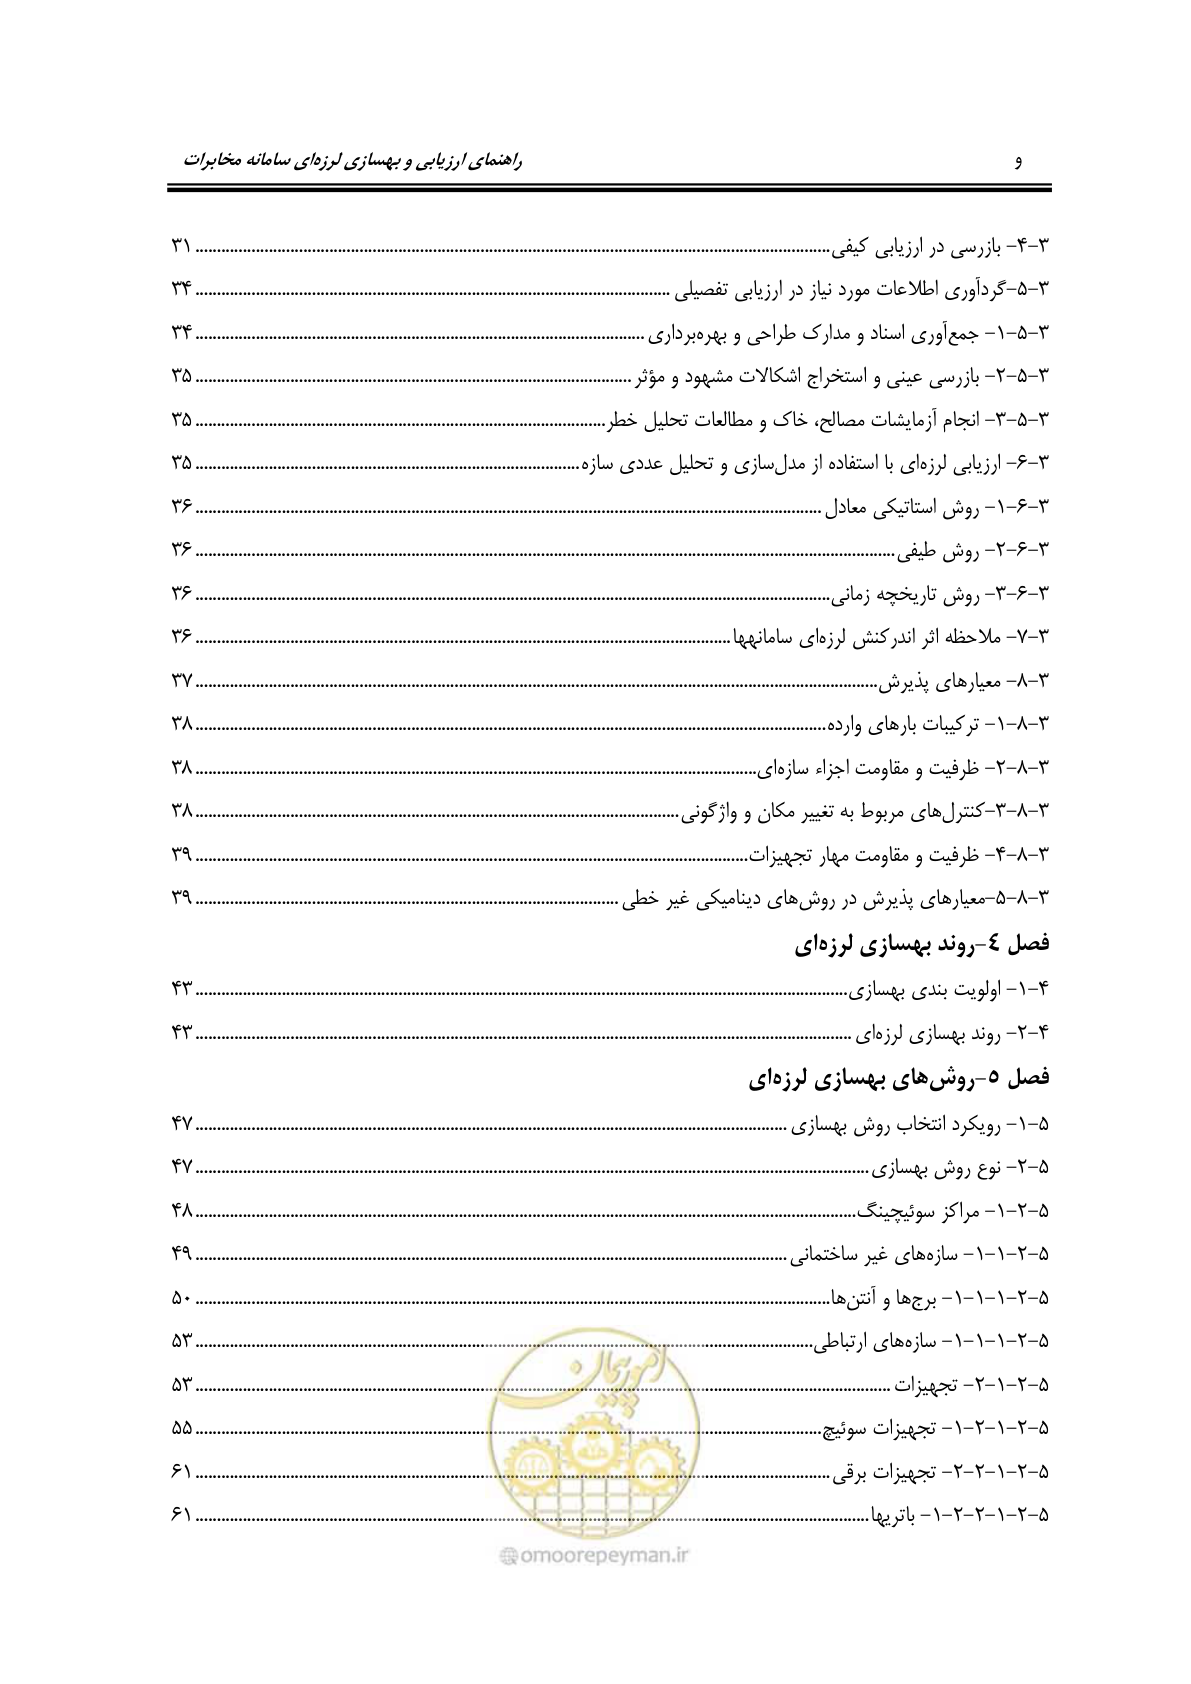 و راهنمای ارزیابی و بهسازی لرزه‌ای سامانه مخابرات
۳-۴- بازرسی در ارزیابی کیفی ........ ۳۱
۳-۵-گردآوری اطلاعات مورد نیاز در ارزیابی تفصیلی ........ ۳۴
۳-۵-۱- جمع‌آوری اسناد و مدارک طراحی و بهره‌برداری ........ ۳۴
۳-۵-۲- بازرسی عینی و استخراج اشکالات مشهود و مؤثر ........ ۳۵
۳-۵-۳- انجام آزمایشات مصالح، خاک و مطالعات تحلیل خطر ........ ۳۵
۳-۶- ارزیابی لرزه‌ای با استفاده از مدل‌سازی و تحلیل عددی سازه ........ ۳۵
۳-۶-۱- روش استاتیکی معادل ........ ۳۶
۳-۶-۲- روش طیفی ........ ۳۶
۳-۶-۳- روش تاریخچه زمانی ........ ۳۶
۳-۷- ملاحظه اثر اندرکنش لرزه‌ای سامانه‌ها ........ ۳۶
۳-۸- معیارهای پذیرش ........ ۳۷
۳-۸-۱- ترکیبات بارهای وارده ........ ۳۸
۳-۸-۲- ظرفیت و مقاومت اجزاء سازه‌ای ........ ۳۸
۳-۸-۳-کنترل‌های مربوط به تغییر مکان و واژگونی ........ ۳۸
۳-۸-۴- ظرفیت و مقاومت مهار تجهیزات ........ ۳۹
۳-۸-۵-معیارهای پذیرش در روش‌های دینامیکی غیر خطی ........ ۳۹
فصل ٤-روند بهسازی لرزه‌ای
۴-۱- اولویت بندی بهسازی ........ ۴۳
۴-۲- روند بهسازی لرزه‌ای ........ ۴۳
فصل ٥-روش‌های بهسازی لرزه‌ای
۵-۱- رویکرد انتخاب روش بهسازی ........ ۴۷
۵-۲- نوع روش بهسازی ........ ۴۷
۵-۲-۱- مراکز سوئیچینگ ........ ۴۸
۵-۲-۱-۱- سازه‌های غیر ساختمانی ........ ۴۹
۵-۲-۱-۱-۱- برج‌ها و آنتن‌ها ........ ۵۰
۵-۲-۱-۱-۱- سازه‌های ارتباطی ........ ۵۳
۵-۲-۱-۲- تجهیزات ........ ۵۳
۵-۲-۱-۲-۱- تجهیزات سوئیچ ........ ۵۵
۵-۲-۱-۲-۲- تجهیزات برقی ........ ۶۱
۵-۲-۱-۲-۲-۱- باتریها ........ ۶۱
امور پیمان
@omoorepeyman.ir